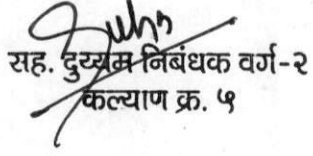 सह. दुय्यम निबंधक वर्ग-२
कल्याण क्र. ५